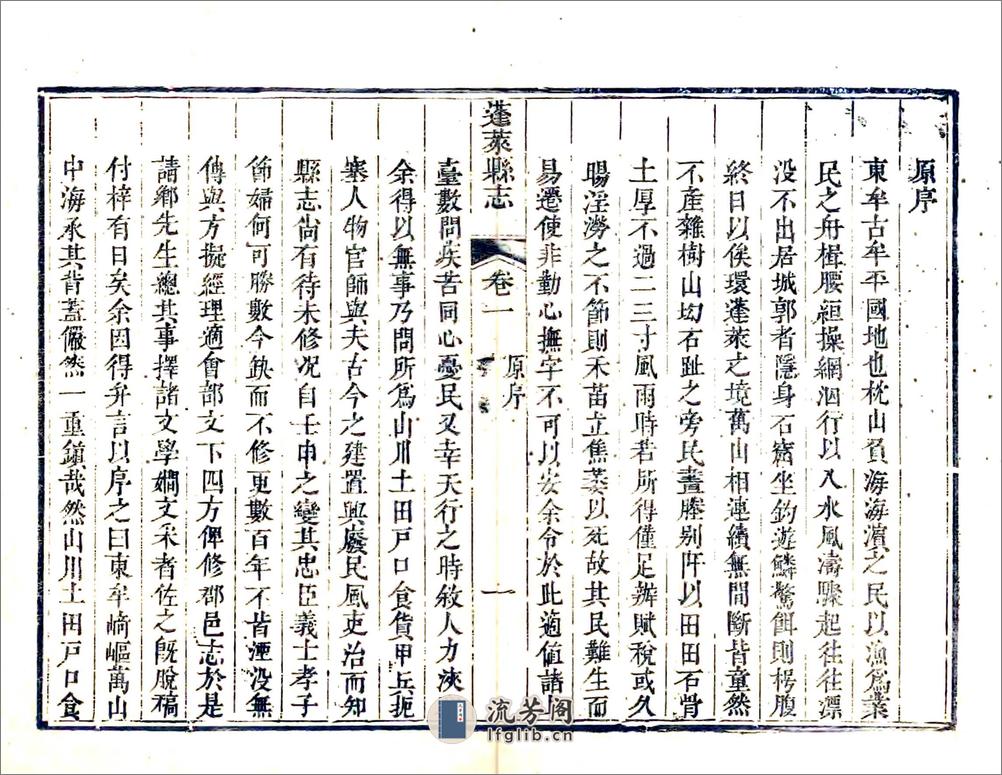 原序
東牟古牟平國地也枕山負海海濱之民以漁爲業
民之舟楫腰䋎操網泅行以入水風濤驟起往往漂
没不出居城郭者隱身石窩坐釣遊鱗驚餌則枵腹
終日以俟環蓬萊之境舊山相連續無間斷皆童然
不產雜樹山切石趾之旁民畫塍别阡以田田石骨
土厚不過二三寸風雨時若所得僅足辦賦稅或久
暘淫澇之不節則禾苗立焦萎以死故其民難生而
易遷使非勤心撫字不可以安余令於此適值諸上
蓬萊縣志
卷一
原序
一
臺數問疾苦同心憂民又幸天行之時敘人力浹
余得以無事乃問所爲山川土田戸口食貨甲兵扼
塞人物官師與夫古今之建置興廢民風吏治而知
縣志尚有待未修况自壬申之變其忠臣義士孝子
節婦何可勝數今缺而不修更數百年不皆湮没無
傳與方擬經理適會部文下四方俾修郡邑志於是
請鄉先生總其事擇諸文學嫺文采者佐之既脫稿
付梓有日矣余因得弁言以序之曰東牟崎嶇萬山
中海承其背蓋儼然一重鎮哉然山川土田戸口食
流芳阁
lfglib.cn